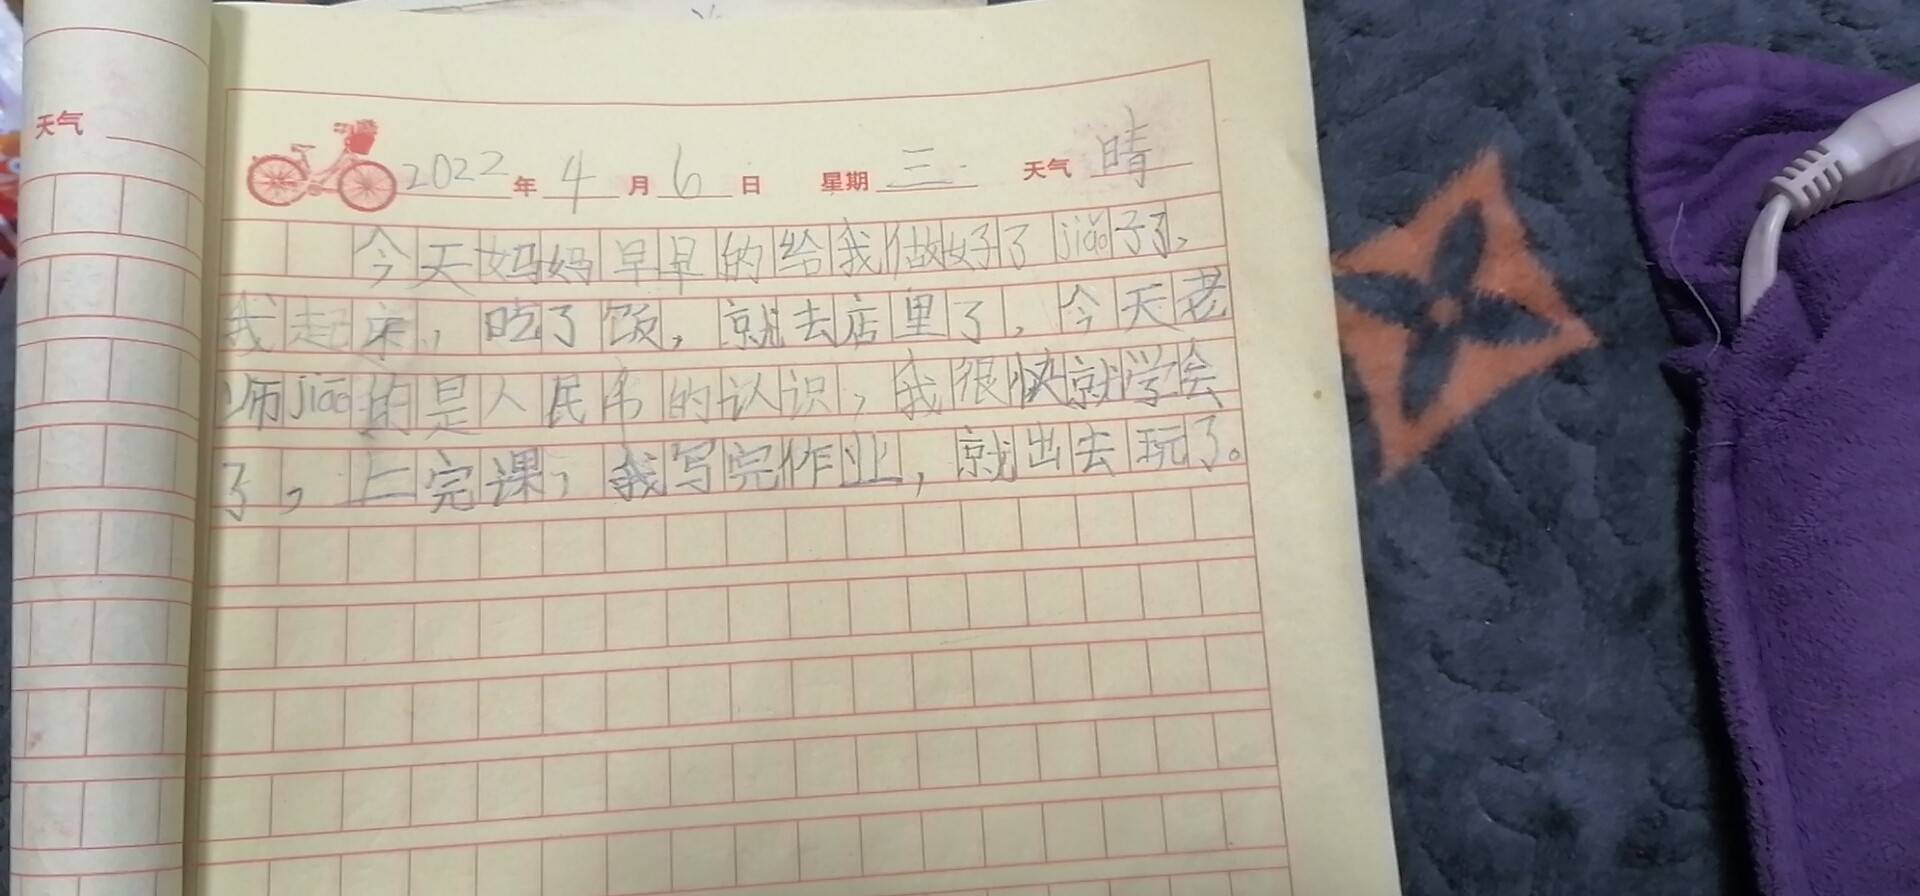 天气
2022年4月6日 星期三 天气 晴
今天妈妈早早的给我做好了jiǎo子了,
我起来,吃了饭,就去店里了,今天老
师jiāo的是人民币的认识,我很快就学会
了,上完课,我写完作业,就出去玩了。